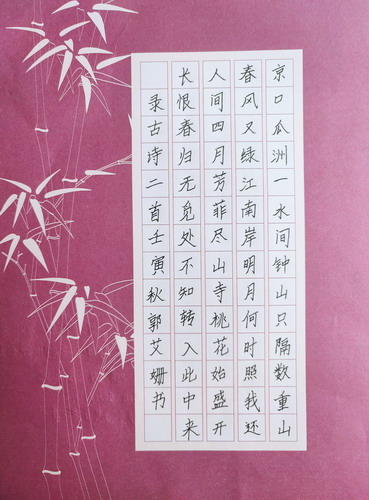 京口瓜洲一水间钟山只隔数重山
春风又绿江南岸明月何时照我还
人间四月芳菲尽山寺桃花始盛开
长恨春归无觅处不知转入此中来
录古诗二首壬寅秋郭艾姗书